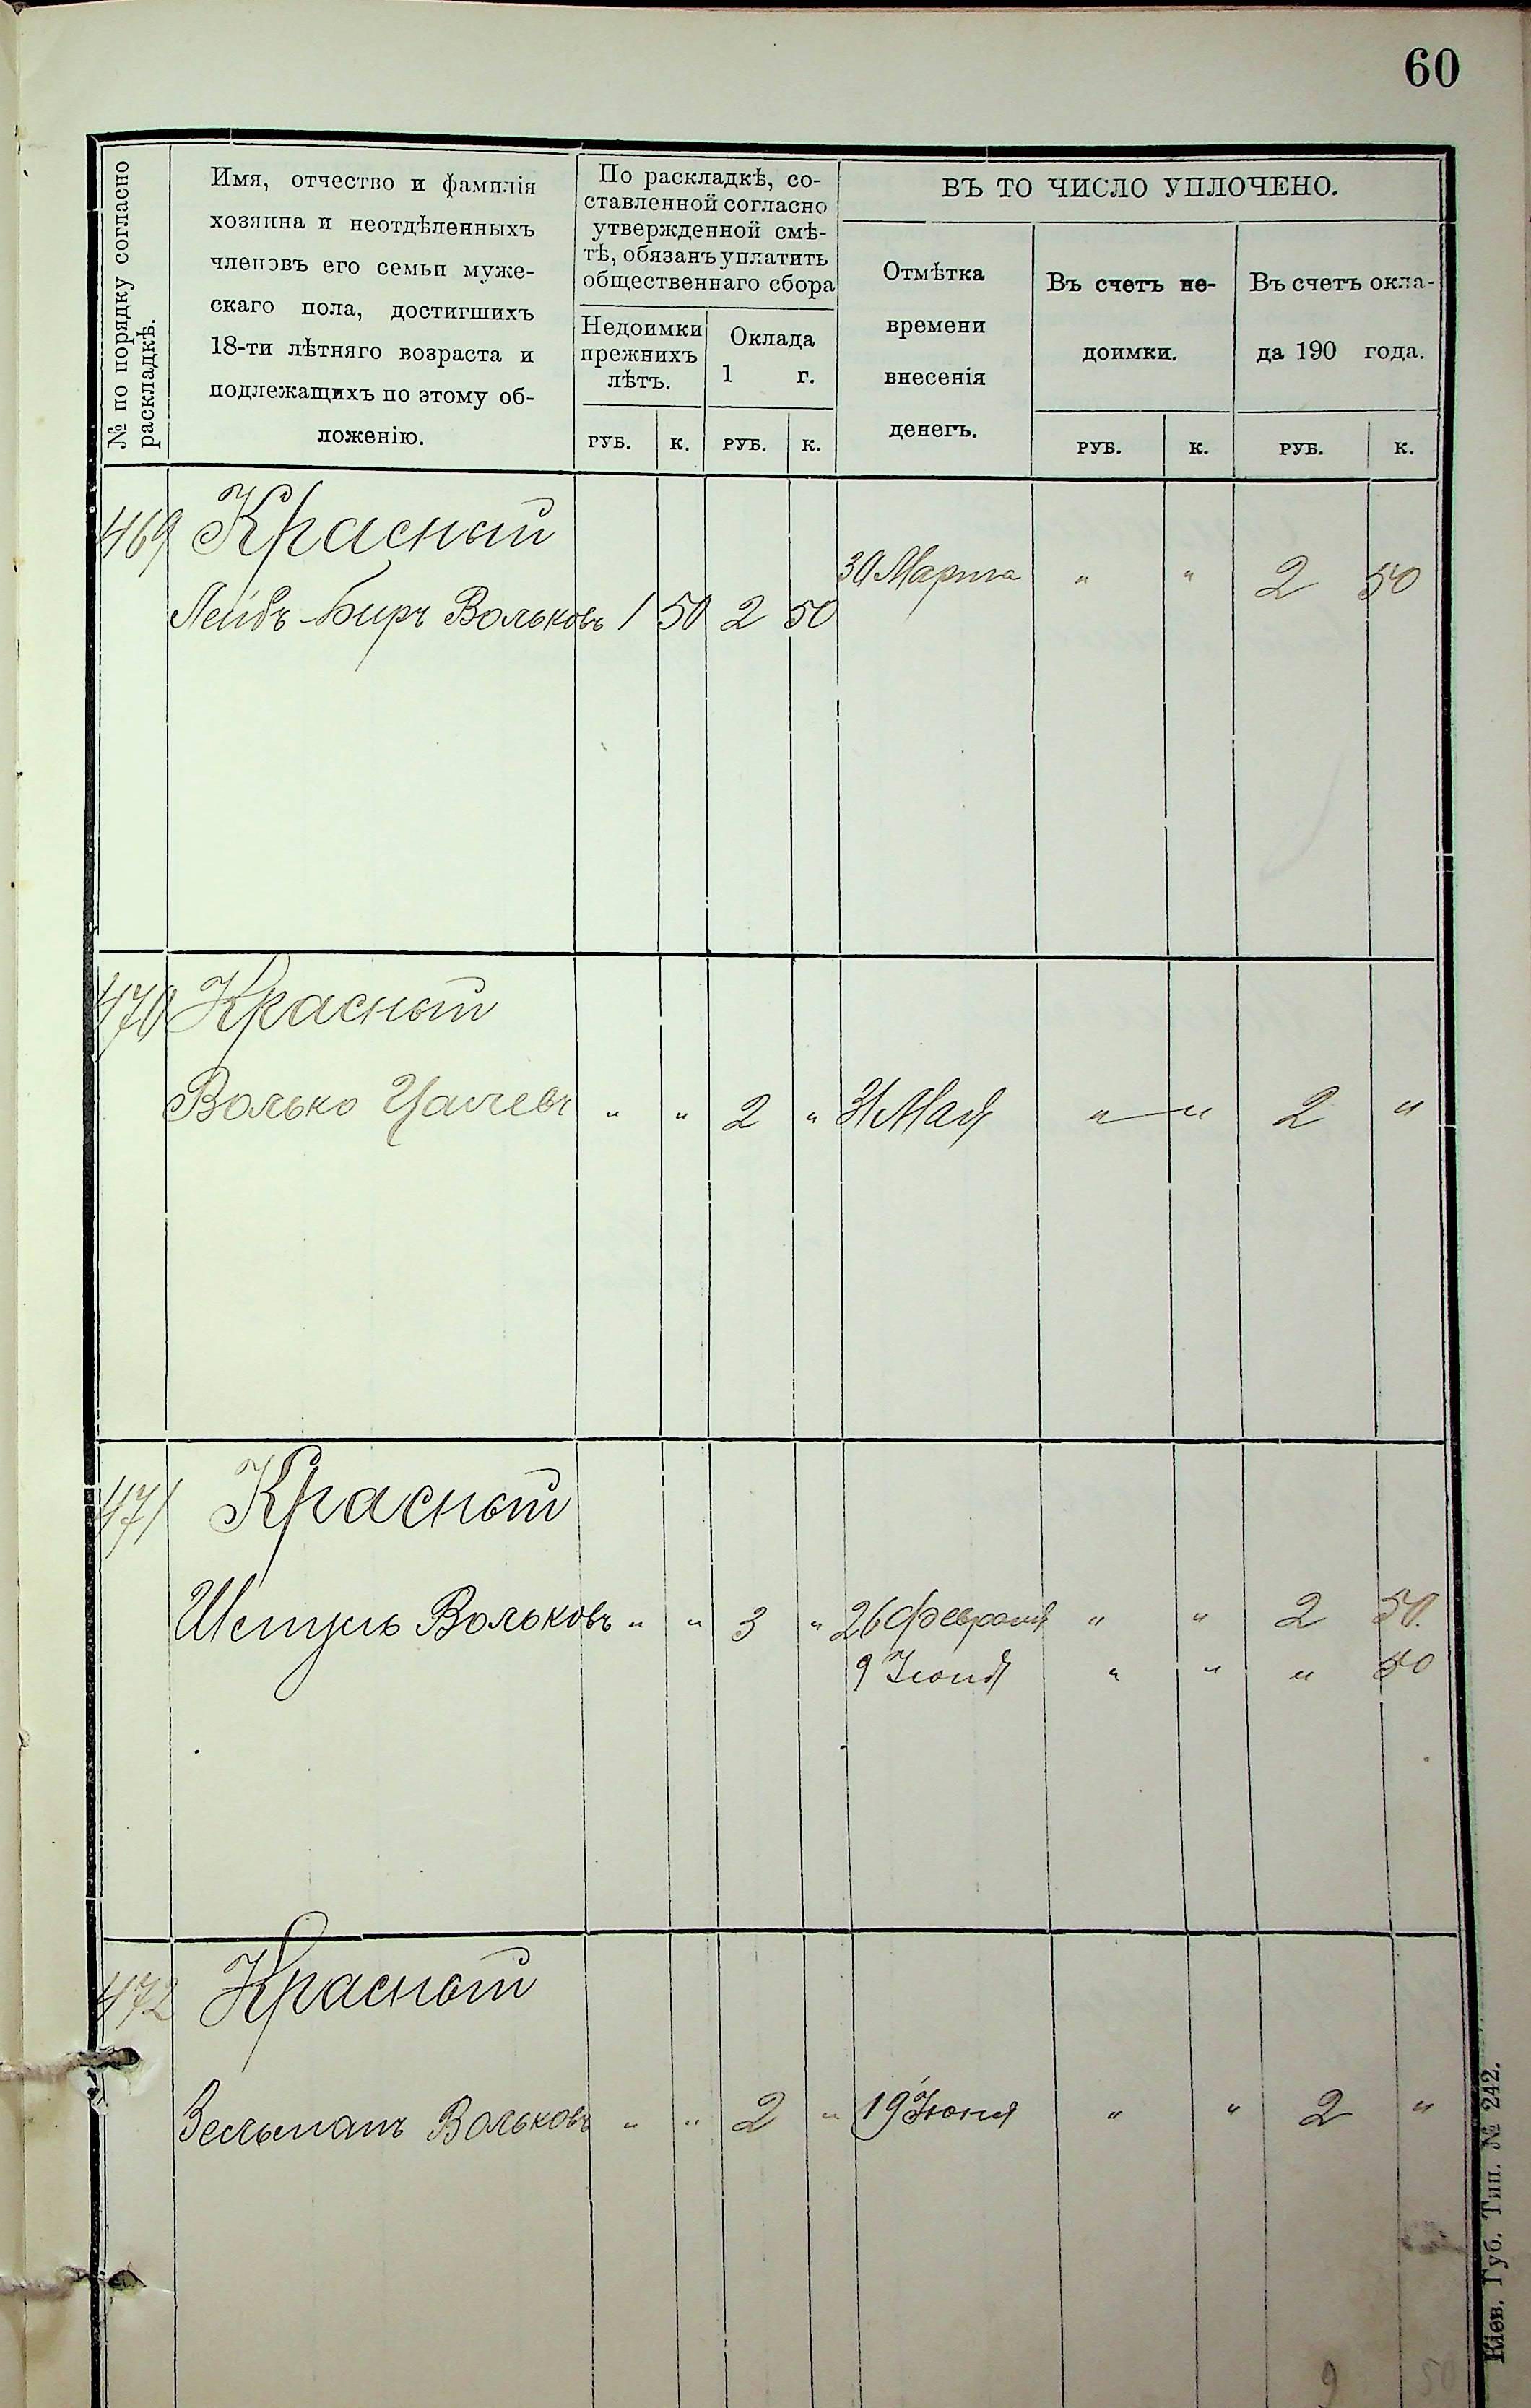 60
№ по порядку согласно
раскладкѣ.
Имя, отчество и фамилія
хозяина и неотдѣленныхъ
членовъ его семьи муже-
скаго пола, достигшихъ
18-ти лѣтняго возраста и
подлежащихъ по этому об-
ложенію.
По раскладкѣ, со-
ставленной согласно
утвержденной смѣ-
тѣ, обязанъ уплатить
общественнаго сбора
Недоимки
прежнихъ
лѣтъ.
Оклада
1 г.
РУБ. К. РУБ. К.
ВЪ ТО ЧИСЛО УПЛОЧЕНО.
Отмѣтка
времени
внесенія
денегъ.
Въ счетъ не-
доимки.
Въ счетъ окла-
да 190 года.
РУБ. К. РУБ. К.
469 Красный
30 Марта " " 2 50
Лейбъ-Беръ Вольковъ 1 50 2 50
470 Красный
Волько " " 2 " 31 Мая " " 2 "
471 Красный
Вольковъ " " 3 " 26 Февраля " " 2 50.
9 " " " 50
472 Красный
Зельманъ Вольковъ " " 2 " 19 Іюня " " 2 "
9 50
Кіев. Губ. Тип. № 242.